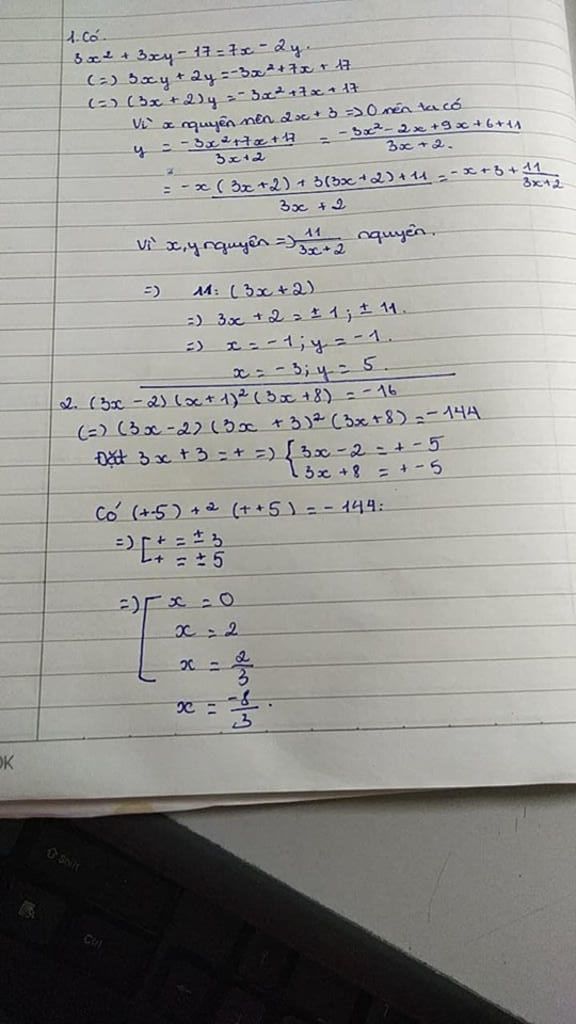 1. Có.
3x² + 3xy - 17 = 7x - 2y.
(=) 3xy + 2y = -3x² + 7x + 17
(=) (3x + 2)y = -3x² + 7x + 17
Vì x nguyên nên 2x + 3 => 0 nên ta có
y = \frac{-3x² + 7x + 17}{3x + 2} = \frac{-3x² - 2x + 9x + 6 + 11}{3x + 2.}
= \frac{-x(3x + 2) + 3(3x + 2) + 11}{3x + 2} = -x + 3 + \frac{11}{3x + 2}
Vì x, y nguyên => \frac{11}{3x + 2} nguyên.
=) 11: (3x + 2)
=) 3x + 2 = ± 1; ± 11.
=) x = -1; y = -1.
x = -3; y = 5.
2. (3x - 2)(x + 1)²(3x + 8) = -16
(=) (3x - 2)(3x + 3)²(3x + 8) = -144
Đặt 3x + 3 = + =) { 3x - 2 = + - 5
3x + 8 = + - 5
Có (+-5) +² (++5) = -144:
=) [ + = ± 3
+ = ± 5
=) [ x = 0
x = 2
x = \frac{2}{3}
x = \frac{-8}{3}.
OK
Shift
Ctrl